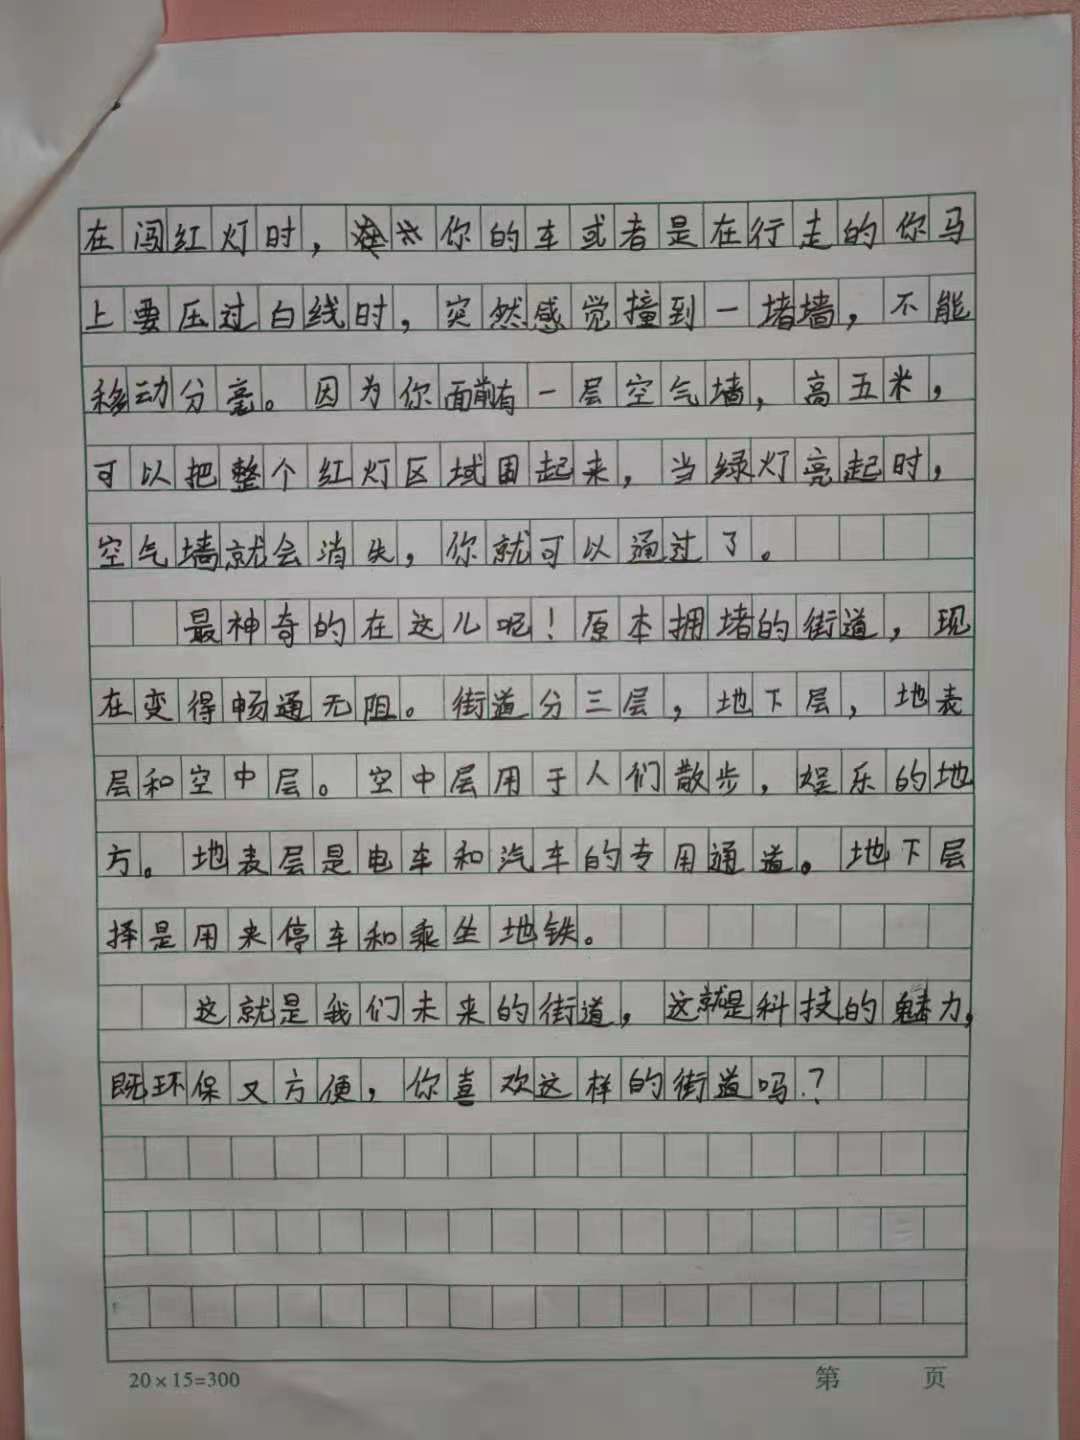 在闯红灯时，你的车或者是在行走的你马
上要压过白线时，突然感觉撞到一堵墙，不能
移动分毫。因为你面前有一层空气墙，高五米，
可以把整个红灯区域围起来，当绿灯亮起时，
空气墙就会消失，你就可以通过了。
最神奇的在这儿呢！原本拥堵的街道，现
在变得畅通无阻。街道分三层，地下层，地表
层和空中层。空中层用于人们散步，娱乐的地
方。地表层是电车和汽车的专用通道。地下层
择是用来停车和乘坐地铁。
这就是我们未来的街道，这就是科技的魅力，
既环保又方便，你喜欢这样的街道吗？
20×15=300
第 页